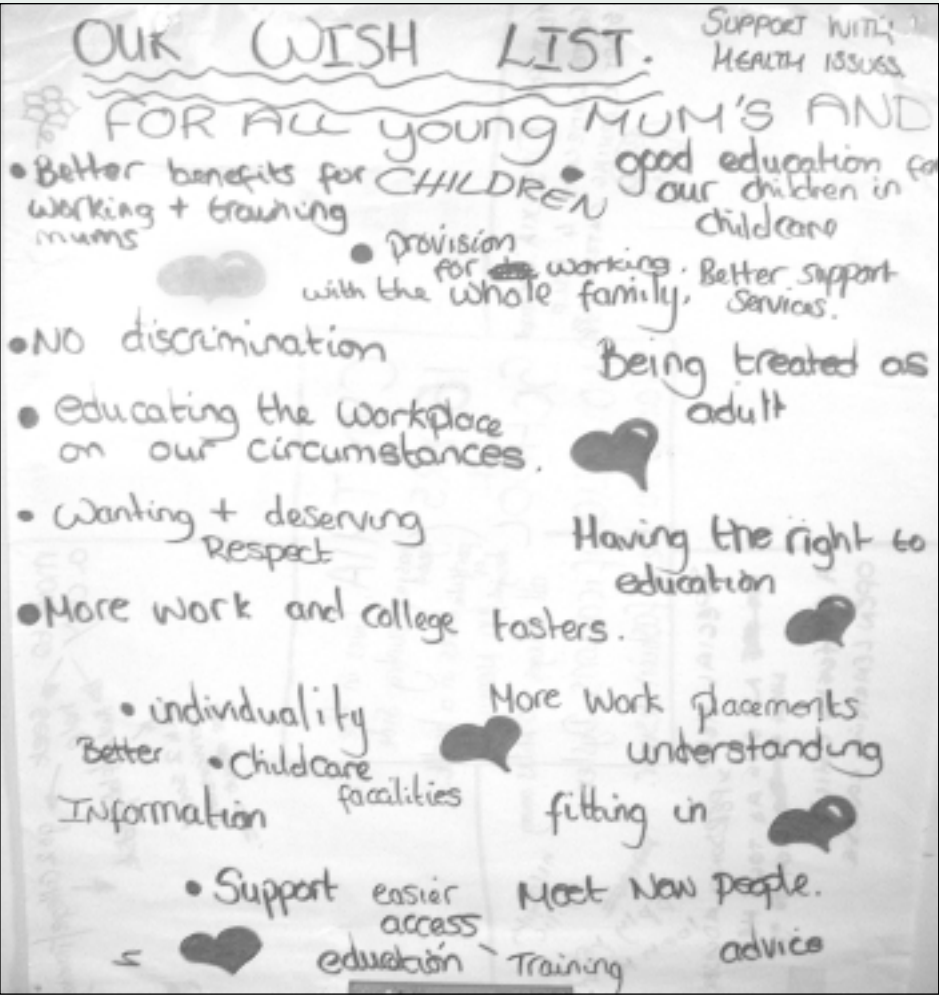 OUR WISH LIST.
SUPPORT WITH
HEALTH ISSUES
FOR ALL young MUM'S AND
CHILDREN
• Better benefits for
working + training
mums
• good education for
our children in
childcare
• provision
for working
with the whole family.
Better support
services.
• NO discrimination
Being treated as
adult
• educating the workplace
on our circumstances.
• Wanting + deserving
Respect
Having the right to
education
• More work and college tasters.
• individuality
More Work placements
Better
• Childcare
facalities
understanding
INformation
fitting in
• Support
easier
access
education
Meet New people.
Training
advice